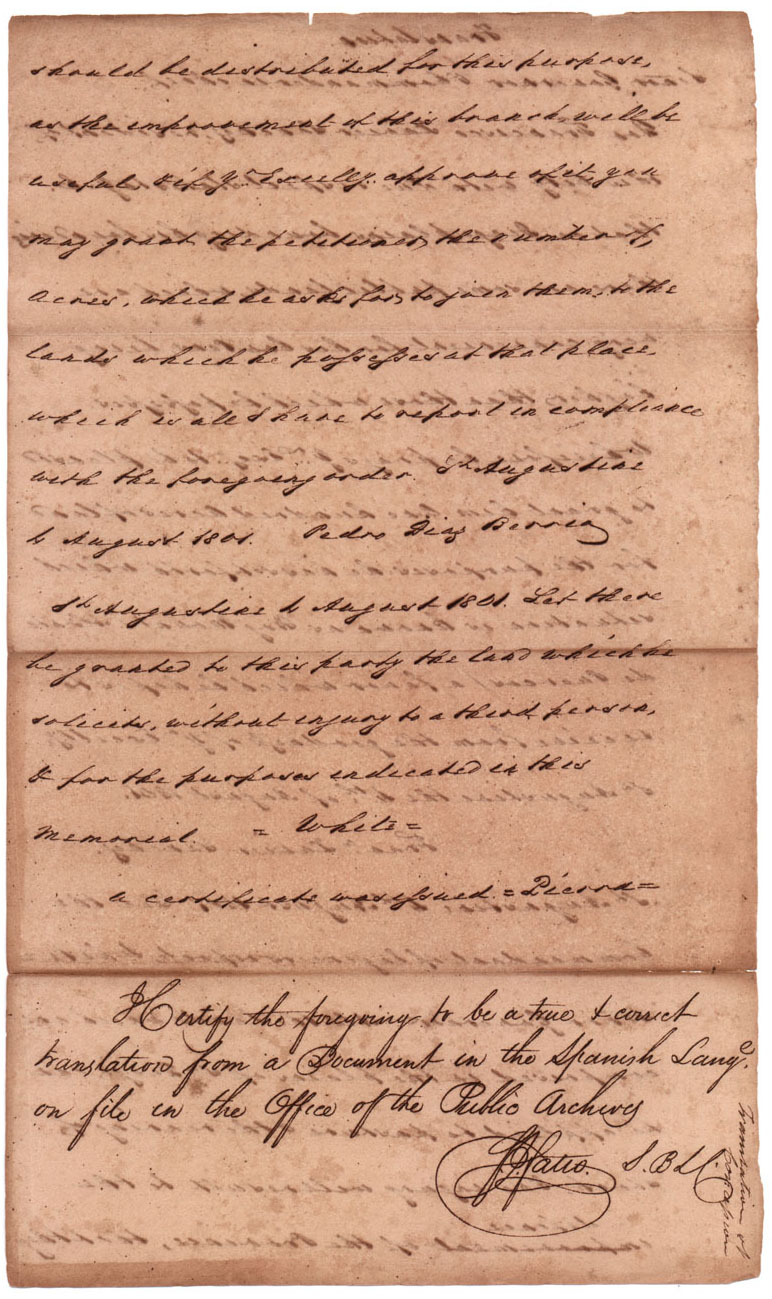 should be distributed for this purpose,
as the improvement of this branch will be
useful & if Yr Excelly. approve of it, you
may grant the petitioner, the number of,
Acres, which he asks for, to join them, to the
lands which he possesses at that place,
which is all I have to report in compliance
with the foregoing order. St. Augustine
6 August 1801. Pedro Diaz Berrio
St. Augustine 6 August 1801. Let there
be granted to this party the land which he
solicits, without injury to a third person,
& for the purposes indicated in this
Memorial. = White =
a certificate was issued. = Pierra =
I Certify the foregoing to be a true & correct
translation from a Document in the Spanish Lange.
on file in the Office of the Public Archives
F J Fatio. S. B L C.
Translation of